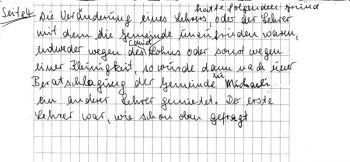 hatte folgenden Grund
Seite 4 Die Veränderung eines Lehrers, oder der Lehrer
mit dem die Gemeinde unzufrieden waren,
entweder wegen des Lohns oder sonst wegen
einer Kleinigkeit, so wurde dann nach einer
Beratschlagung der Gemeinde zu Michaeli
ein anderer Lehrer gemietet. Der erste
Lehrer war, wie schon oben gesagt